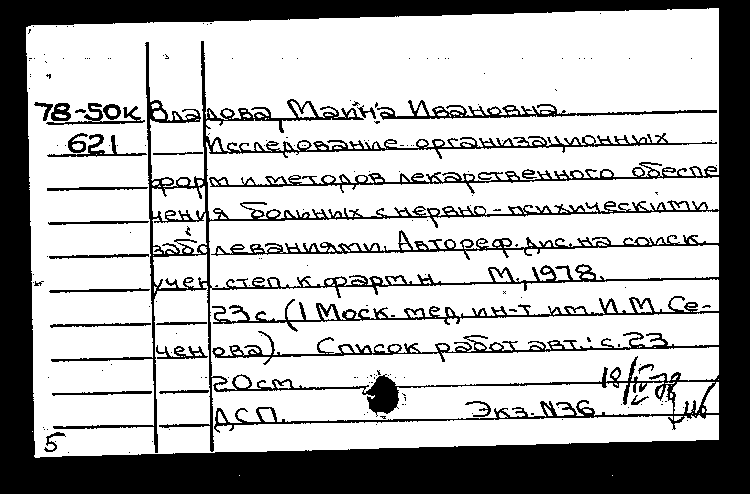 78-50к Владова, Маина Ивановна.
621 Исследование организационных
форм и методов лекарственного обеспе
чения больных с нервно-психическими
заболеваниями. Автореф. дис. на соиск.
учен. степ. к. фарм. н. М., 1978.
23 с. (1 Моск. мед. ин-т им. И.М. Се-
ченова). Список работ авт.: с. 23
20 см.
18/IV-78
ДСП. Экз. N36.
5